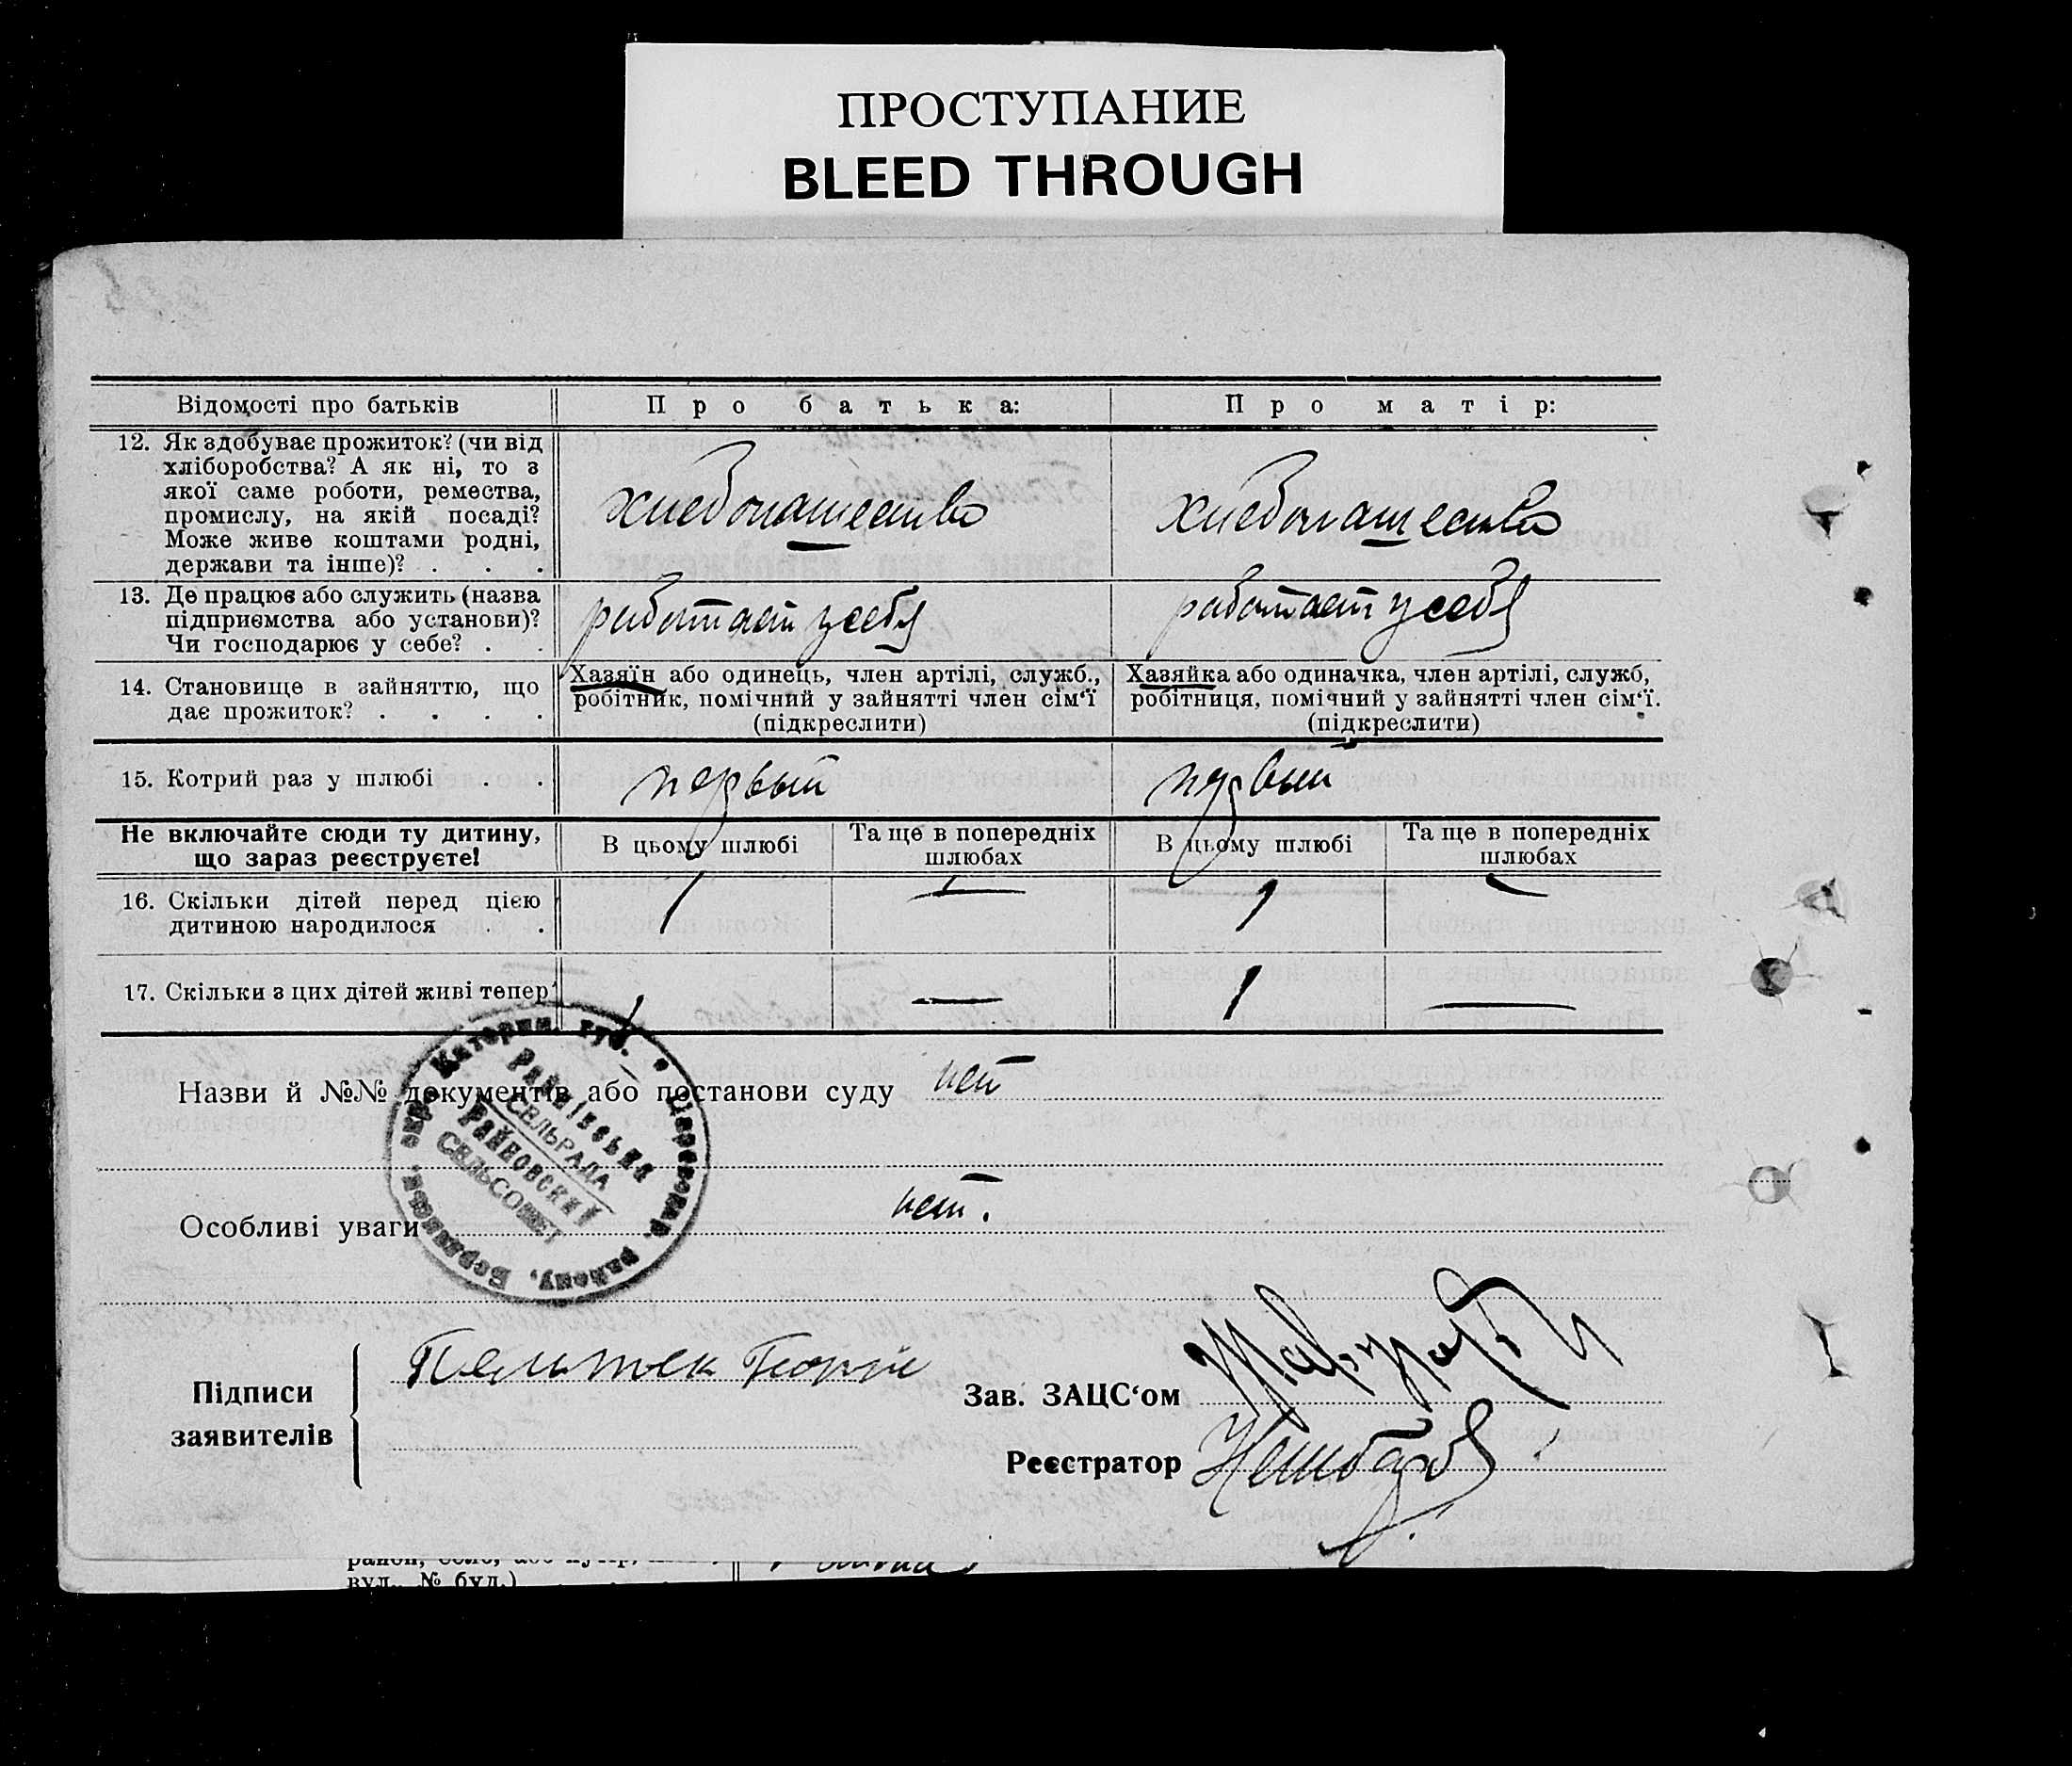 ПРОСТУПАНИЕ
BLEED THROUGH
Відомості про батьків
Про батька:
Про матір:
12. Як здобуває прожиток? (чи від
хліборобства? А як ні, то з
якої саме роботи, ремества,
промислу, на якій посаді?
Може живе коштами родні,
держави та інше)? . . .
хлебопашество
хлебопашество
13. Де працює або служить (назва
підприємства або установи)?
Чи господарює у себе? . .
работает у себя
работает у себя
14. Становище в зайняттю, що
дає прожиток? . . . .
Хазяїн або одинець, член артілі, служб.,
робітник, помічний у зайнятті член сім'ї
(підкреслити)
Хазяйка або одиначка, член артілі, служб,
робітниця, помічний у зайнятті член сім'ї.
(підкреслити)
15. Котрий раз у шлюбі . .
первый
первый
Не включайте сюди ту дитину,
що зараз реєструєте!
В цьому шлюбі
Та ще в попередніх
шлюбах
В цьому шлюбі
Та ще в попередніх
шлюбах
16. Скільки дітей перед цією
дитиною народилося . .
1
—
1
—
17. Скільки з цих дітей живі тепер
1
—
1
—
Назви й №№ документів або постанови суду нет
Особливі уваги нет.
Райнівська
СЕЛЬРАДА
Райновский
СЕЛЬСОВЕТ
району, Бердянськ. окр. Катерин. губ.
Підписи
заявителів
Зав. ЗАЦС'ом
Реєстратор
район, село, або
вул., № буд.)